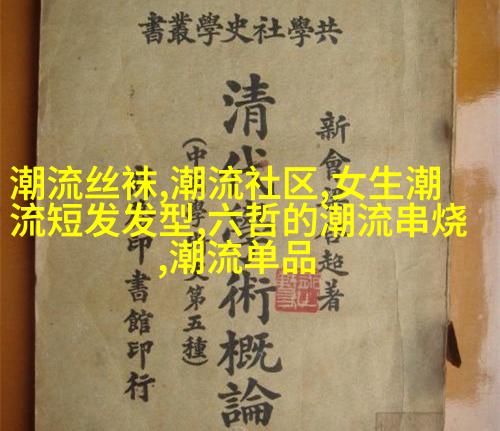 共學社史學叢書
新會超著
清代術概論
(中學第五種)
印書館印行
潮流丝袜,潮流社区,女生潮
流短发发型,六哲的潮流串烧
,潮流单品